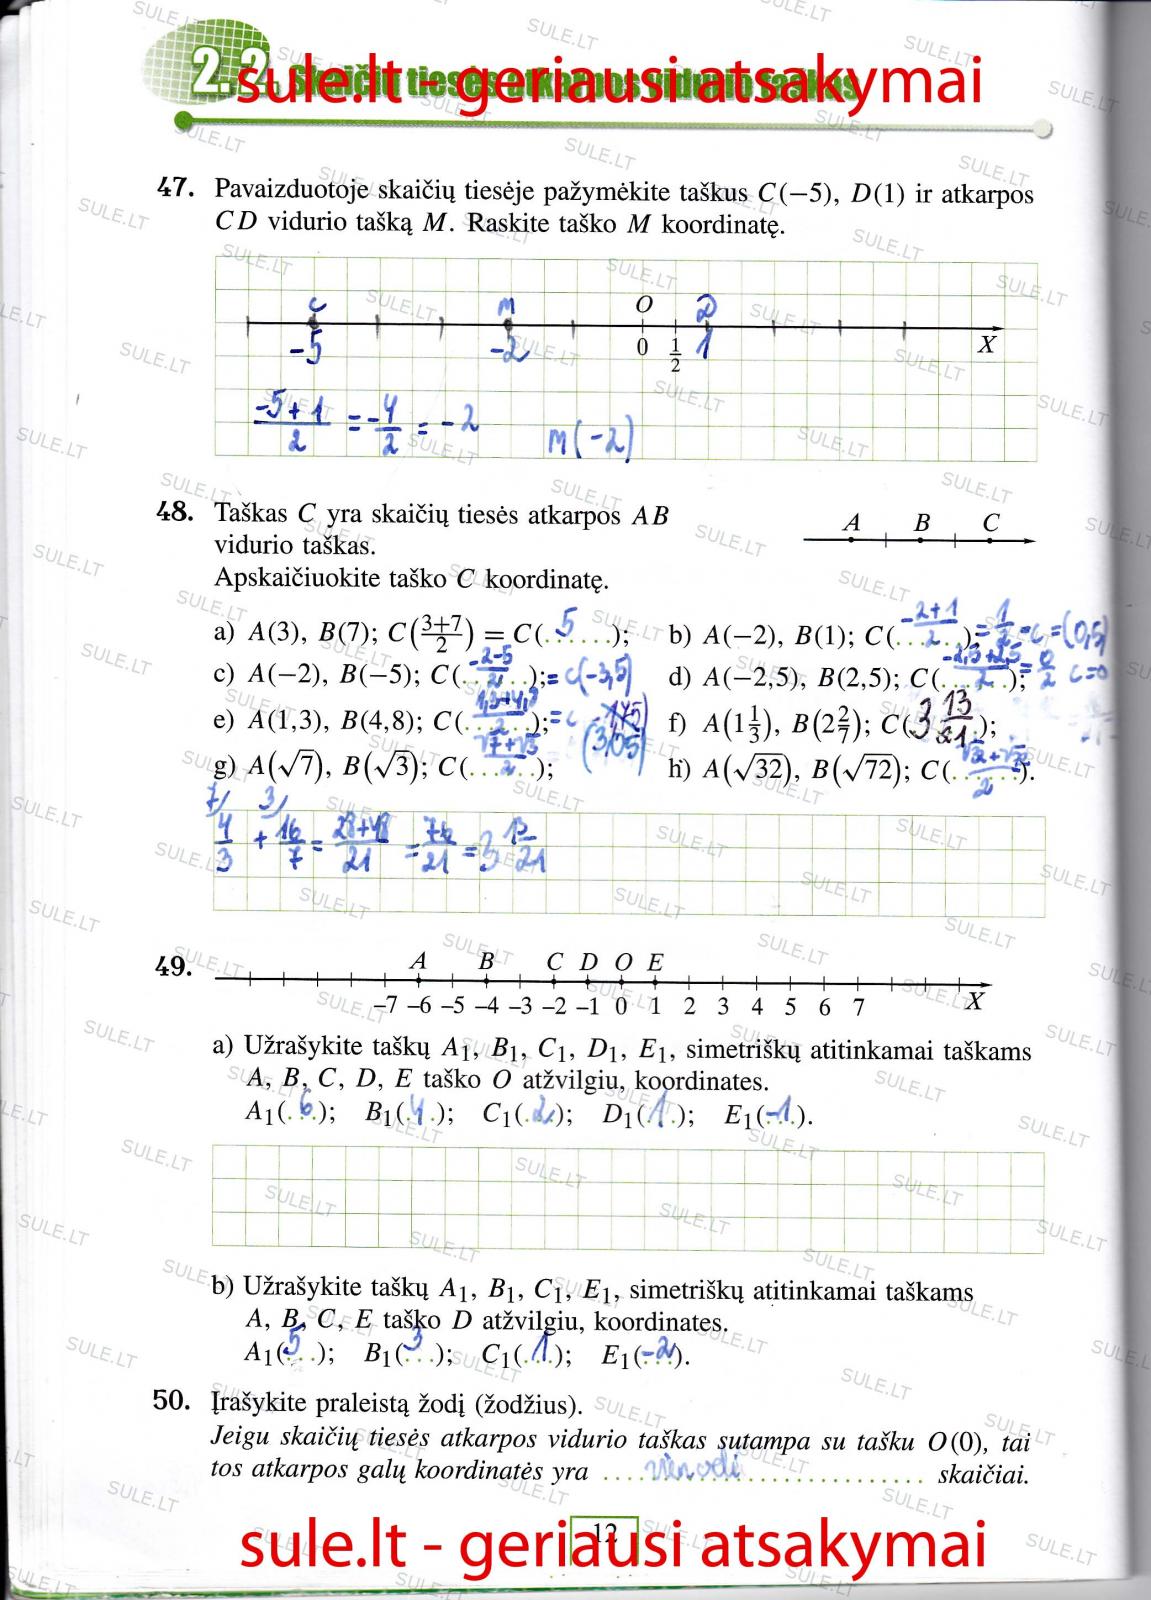 2.2. Skaičių tiesės atkarpos vidurio taškas
sule.lt - geriausi atsakymai
47. Pavaizduotoje skaičių tiesėje pažymėkite taškus C(−5), D(1) ir atkarpos
CD vidurio tašką M. Raskite taško M koordinatę.
C M O D
−5 −2 0 1/2 1 X
(−5+1)/2 = −4/2 = −2 M(−2)
48. Taškas C yra skaičių tiesės atkarpos AB
vidurio taškas.
A B C
Apskaičiuokite taško C koordinatę.
a) A(3), B(7); C((3+7)/2) = C(5); b) A(−2), B(1); C((−2+1)/2); = C = (0,5)
c) A(−2), B(−5); C((−2−5)/2); = C(−3,5) d) A(−2,5), B(2,5); C((−2,5+2,5)/2); = 0/2 C=0
e) A(1,3), B(4,8); C((1,3+4,8)/2); = C (3,05) f) A(1 1/3), B(2 2/7); C(3 13/21);
g) A(√7), B(√3); C((√7+√3)/2); h) A(√32), B(√72); C((√32+√72)/2).
7/ 3/
4/3 + 16/7 = (28+48)/21 = 76/21 = 3 13/21
49. A B C D O E
−7 −6 −5 −4 −3 −2 −1 0 1 2 3 4 5 6 7 X
a) Užrašykite taškų A1, B1, C1, D1, E1, simetriškų atitinkamai taškams
A, B, C, D, E taško O atžvilgiu, koordinates.
A1(6); B1(4); C1(2); D1(1); E1(−1).
b) Užrašykite taškų A1, B1, C1, E1, simetriškų atitinkamai taškams
A, B, C, E taško D atžvilgiu, koordinates.
A1(5); B1(3); C1(1); E1(−2).
50. Įrašykite praleistą žodį (žodžius).
Jeigu skaičių tiesės atkarpos vidurio taškas sutampa su tašku O(0), tai
tos atkarpos galų koordinatės yra vienodi skaičiai.
12
sule.lt - geriausi atsakymai
SULE.LT